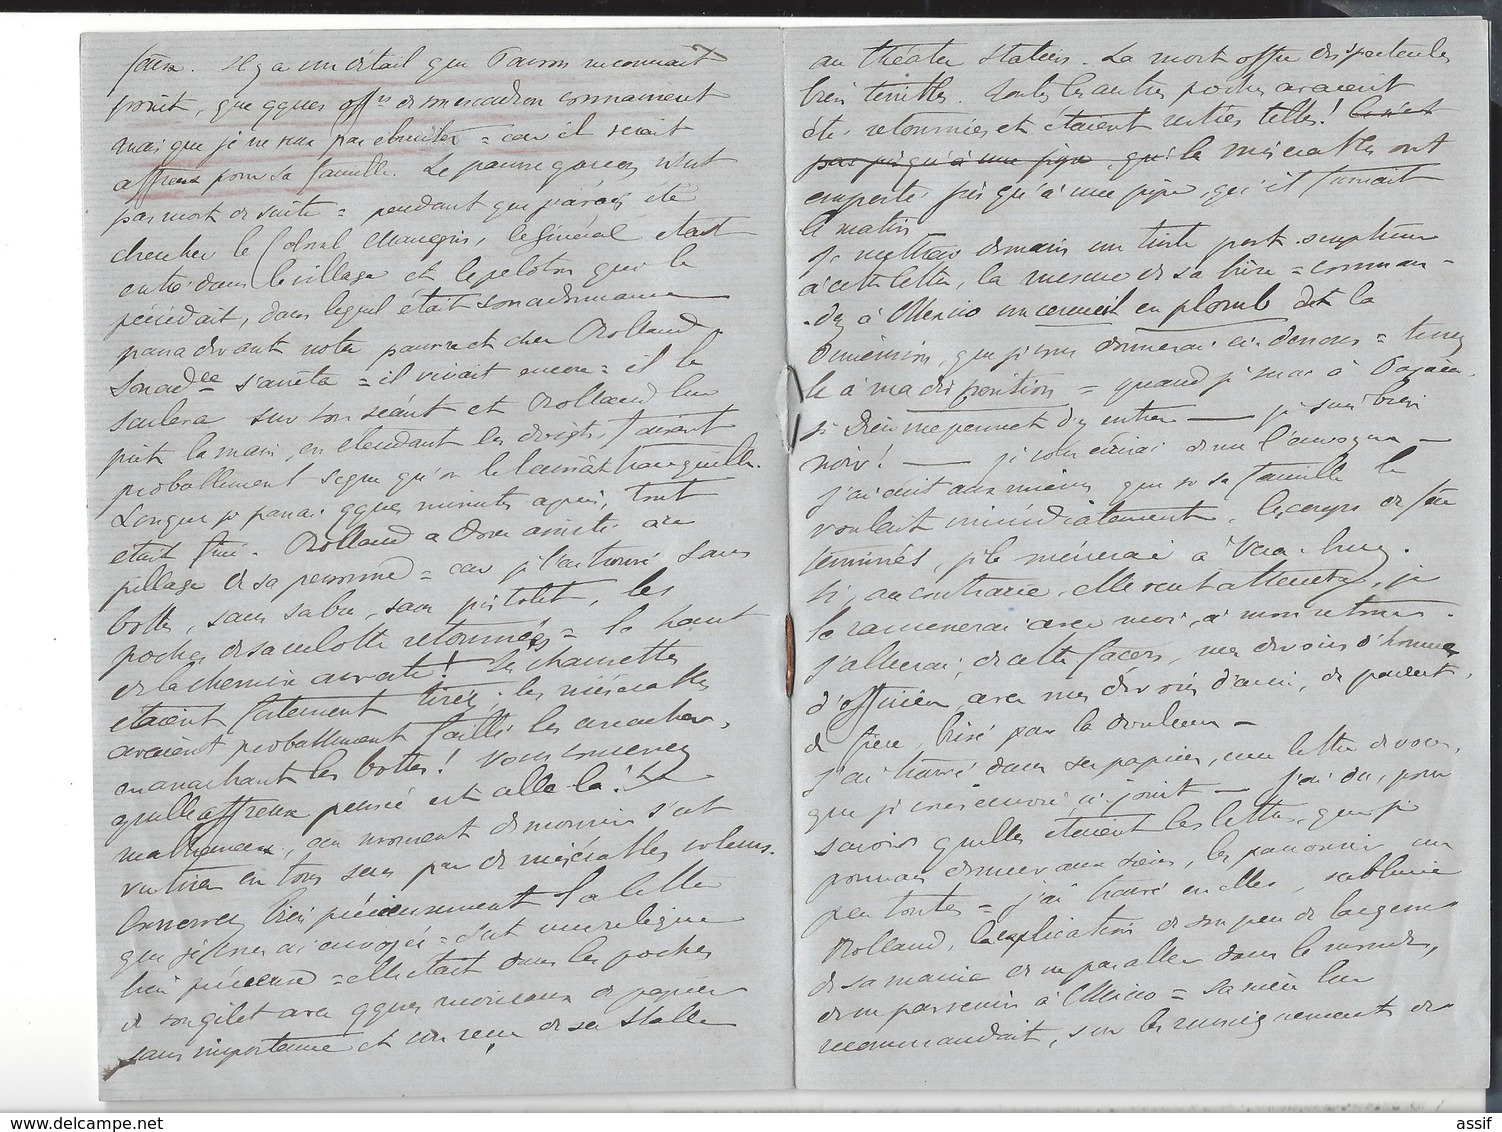 faire. Il y a un détail que Pavron ne connait
point, que qques offrs de son escadron connaissent
mais que je ne veux pas ébruiter = car il serait
affreux pour sa famille. Le pauvre garçon n'est
pas mort de suite = pendant que j'avais été
chercher le Colonel Mangin, le Général était
entré dans le village et le peloton qui le
précédait, dans lequel était son ordonnance
passa devant notre pauvre et cher Rolland.
Son ordce s'arrêta = il vivait encore = il le
souleva sur son séant et Rolland lui
prit la main, en étendant les doigts, faisant
probablement signe qu'on le laissât tranquille.
Lorsque je passai qques minutes après, tout
était fini. Rolland a donc assisté au
pillage de sa personne = car je l'ai trouvé sans
bottes, sans sabre, sans pistolet, les
poches de sa culotte retournées = le haut
de la chemise arraché! Les chaussettes
étaient fortement tirées; les misérables
avaient probablement failli les arracher,
en arrachant les bottes! Vous comprenez
quelle affreuse pensée est celle-là! Le
malheureux, au moment de mourir s'est
vu tirer en tous sens par de misérables voleurs.
Conservez bien précieusement la lettre
que je vous ai envoyée = c'est une relique
bien précieuse = elle était dans les poches
de son gilet avec qques morceaux de papier
sans importance et un reçu de sa stalle
au théâtre Italien. La mort offre des spectacles
bien terribles. Toutes les autres poches avaient
été retournées et étaient restées telles! Ce n'est
pas jusqu'à une pipe que les misérables ont
emporté jusqu'à une pipe, qu'il fumait
le matin
Je mettrai demain un triste post-scriptum
à cette lettre, la mesure de sa bière = comman-
-dez à Mexico un cercueil en plomb dont la
dimension, que je vous donnerai ci-dessous = tenez
le à ma disposition = quand j'irai à
si Dieu me permet d'y entrer — je suis bien
noir! — je vous écrirai de me l'envoyer —
J'ai écrit aux miens que si sa famille le
voulait immédiatement, les congés de
terminés, je le ménerai à Vera-Cruz.
si, au contraire, elle veut attendre, je
le ramenerai avec moi, à mon retour.
J'allierai, de cette façon, mes devoirs d'homme
d'officier, avec mes devoirs d'ami, de parent,
de frère, brisé par la douleur —
J'ai trouvé dans ses papiers, une lettre de vous,
que je vous envoie ci-joint — J'ai dû, pour
savoir quelles étaient les lettres, que je
pouvais donner aux siens, les parcourir un
peu toutes = j'ai trouvé en elles, sublime
Rolland, l'explication de son peu de largesse
de sa manie de ne pas aller dans le monde,
de ne pas venir à Mexico = sa mère lui
recommandait, sur les renseignements de
assif
© www.delcampe.net